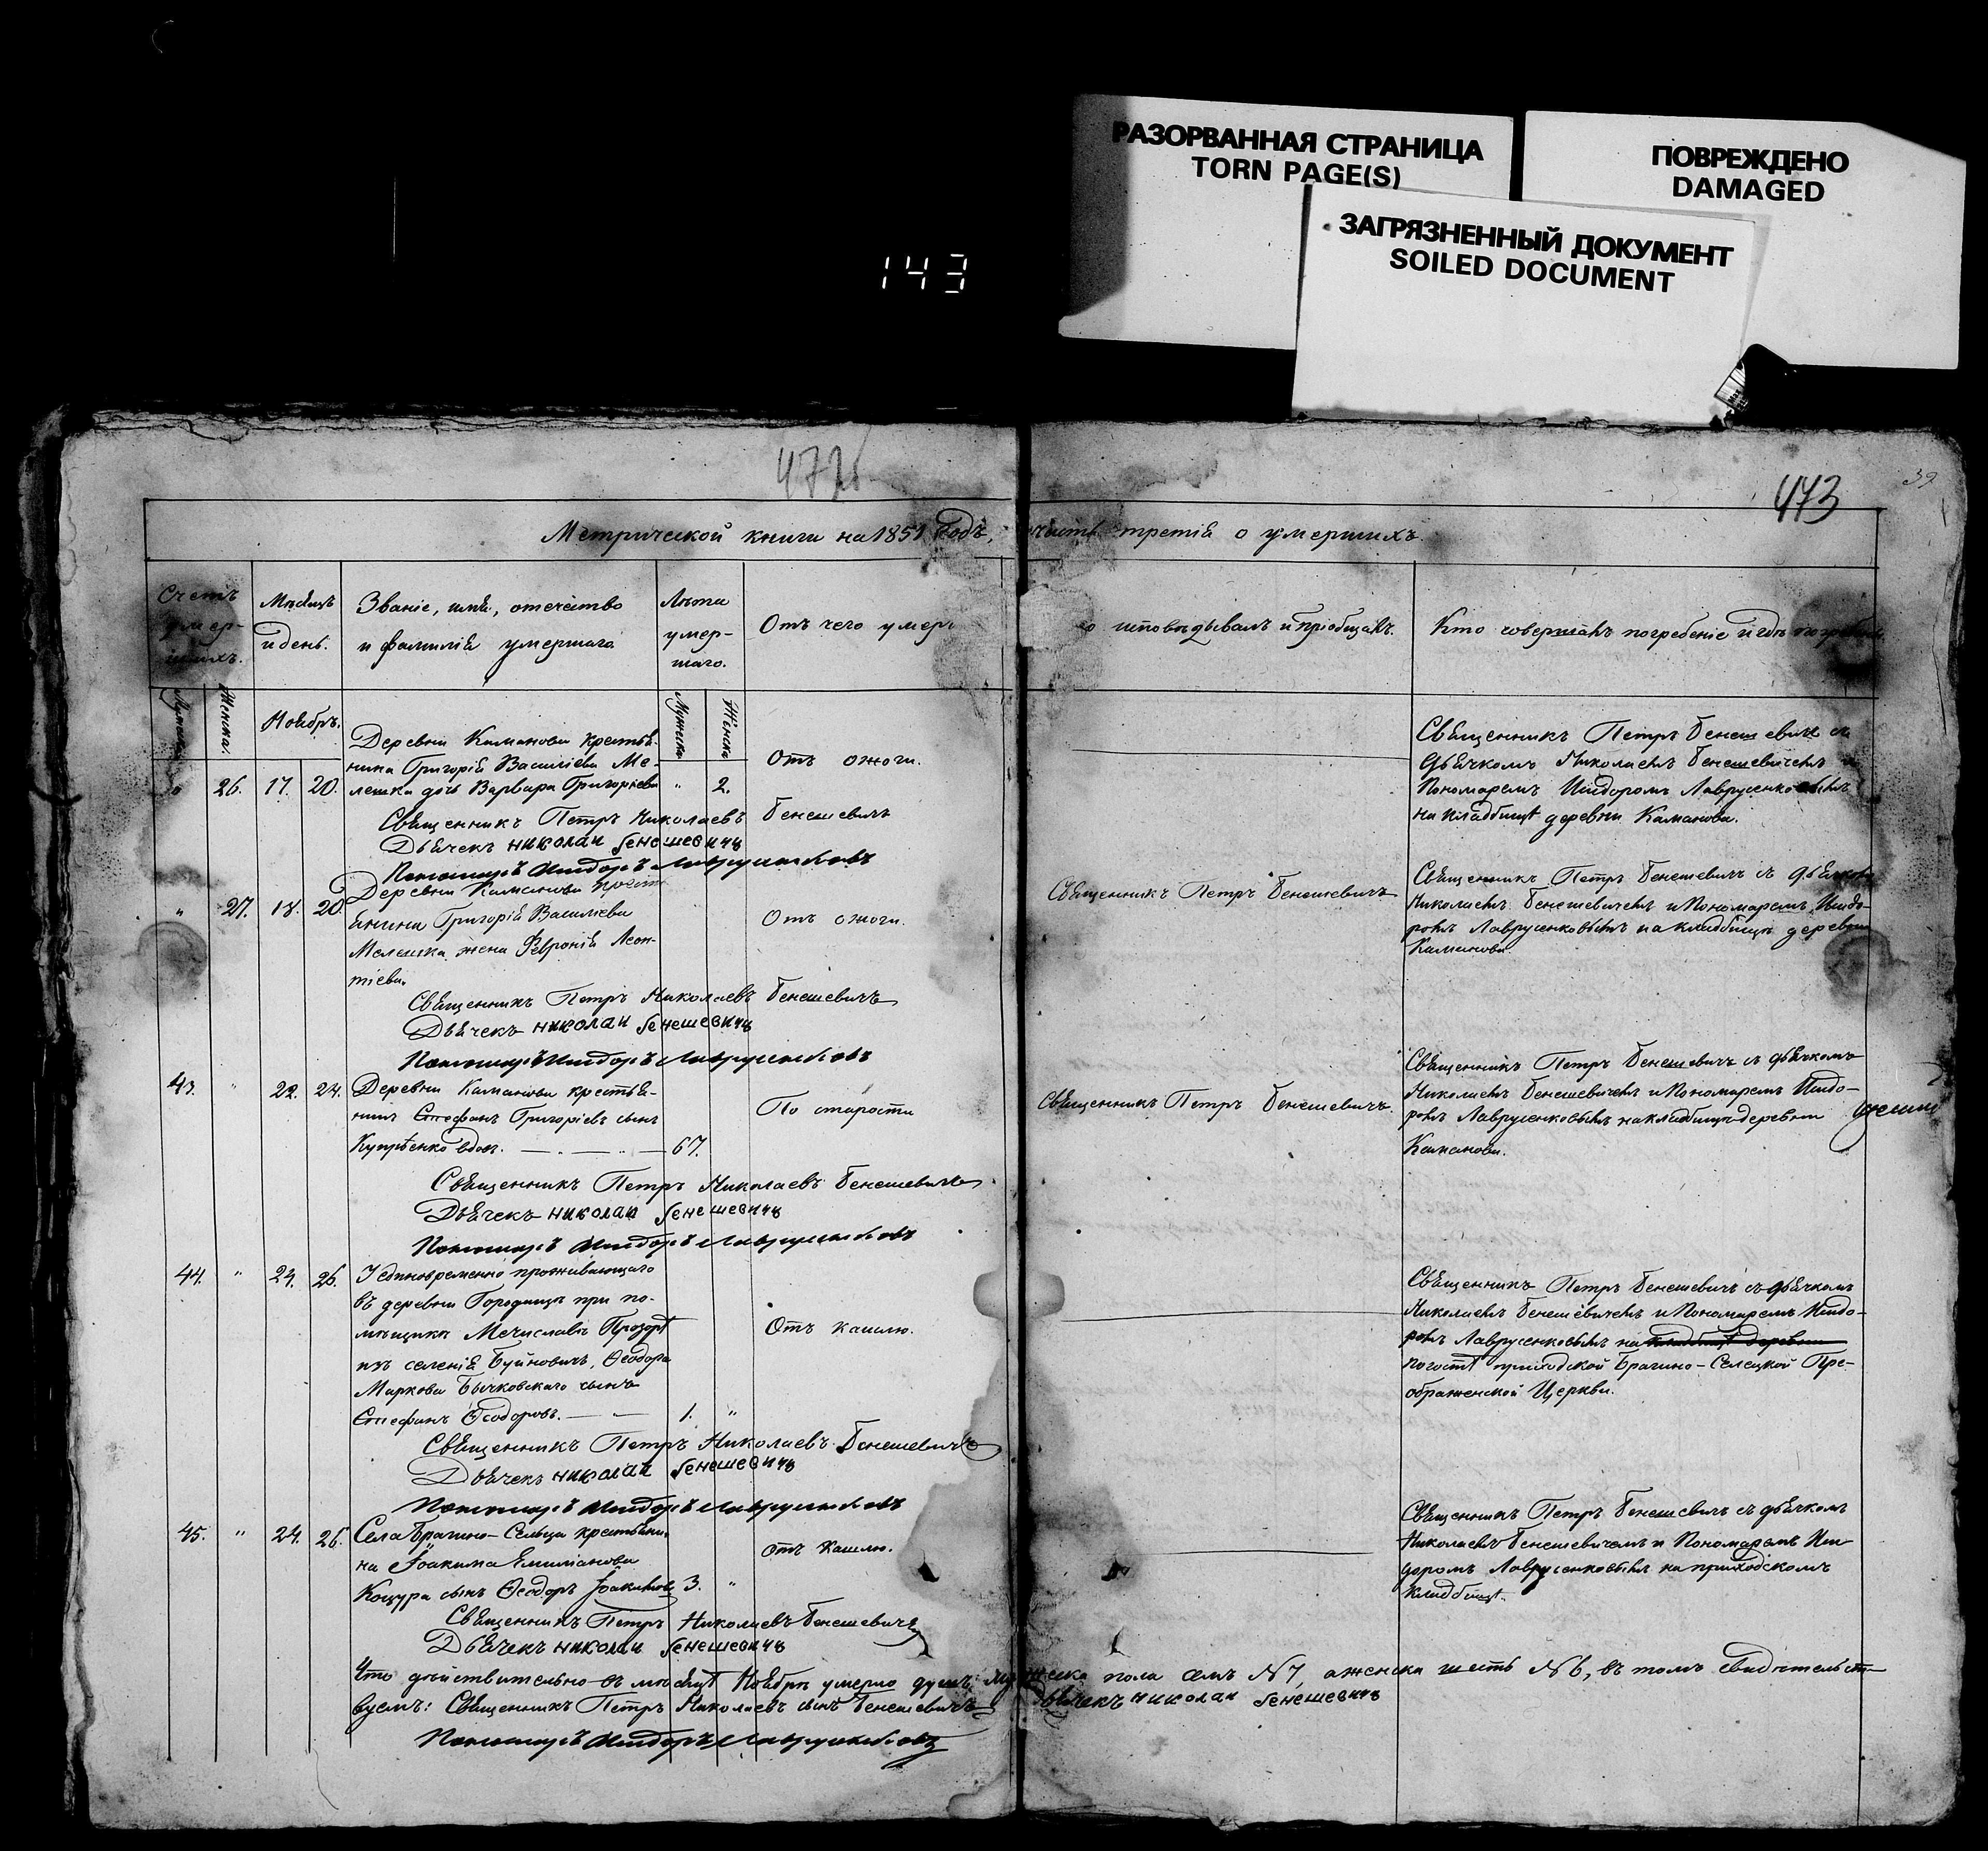 РАЗОРВАННАЯ СТРАНИЦА
TORN PAGE(S)
ПОВРЕЖДЕНО
DAMAGED
ЗАГРЯЗНЕННЫЙ ДОКУМЕНТ
SOILED DOCUMENT
143
472
473
39
Метрической книги на 1851 годъ, часть третія о умершихъ.
Счетъ
умер-
шихъ.
Мѣсяцъ
и день.
Званіе, имя, отечество
и фамилія умершаго
Лѣта
умер-
шаго.
Отъ чего умеръ
исповѣдывалъ и пріобщалъ.
Кто совершалъ погребеніе и гдѣ погребены
Мужска
Женска.
Ноябрь.
Мужска
Женска
26. 17. 20.
Деревни Каманова крестья-
нина Григорія Василіева Ме-
лешка дочь Варвара Григоріева " 2.
Отъ ожоги.
Священникъ Петръ Николаевъ Бенешевичъ
Дьячекъ николаи бенешевичъ
Пономаръ Исидоръ Лавруценковъ
Священникъ Петръ Бенешевичъ съ
Дьячкомъ Николаемъ Бенешевичемъ и
Пономаремъ Исидоромъ Лавруценковымъ
на кладбищѣ деревни Каманова.
" 27. 18. 20.
Деревни Каманова крест
янина Григорія Василіева
Мелешка жена Февронія Леон-
тіева.
Отъ ожоги.
Священникъ Петръ Бенешевичъ
Священникъ Петръ Николаевъ Бенешевичъ
Дьячекъ николаи бенешевичъ
Пономаръ Исидоръ Лавруценковъ
Священникъ Петръ Бенешевичъ съ дьячкомъ
Николаемъ Бенешевичемъ и Пономаремъ Исидо-
ромъ Лавруценковымъ на кладбищѣ деревни
Каманова.
43. " 22. 24.
Деревни Каманова крестья-
нинъ Стефанъ Григоріевъ сынъ
вдов. 67.
По старости
Священникъ Петръ Бенешевичъ.
Священникъ Петръ Николаевъ Бенешевичъ
Дьячекъ николаи бенешевичъ
Пономаръ Исидоръ Лавруценковъ
Священникъ Петръ Бенешевичъ съ дьячкомъ
Николаемъ Бенешевичемъ и Пономаремъ Исидо-
ромъ Лавруценковымъ на кладбищѣ деревни
Каманова.
44. " 24. 26.
проживающаго
въ деревни Городищѣ при по-
мѣщикѣ Мечиславѣ
изъ селенія Буйновичъ, Ѳеодора
Маркова Бычковскаго сынъ
Стефанъ Ѳеодоровъ. 1. "
Отъ кашлю.
Священникъ Петръ Николаевъ Бенешевичъ
Дьячекъ николаи бенешевичъ
Пономаръ Исидоръ Лавруценковъ
Священникъ Петръ Бенешевичъ съ дьячкомъ
Николаемъ Бенешевичемъ и Пономаремъ Исидо-
ромъ Лавруценковымъ на кладбищѣ деревни
погостѣ приходской Брагино-Селецкой Пре-
ображенской Церкви.
45. " 24. 26.
Села Брагино-Сельца крестьяни-
на Іоакима Емиліанова
Коцура сынъ Ѳеодоръ Іоакимов 3. "
отъ кашлю.
Священникъ Петръ Николаевъ Бенешевичъ
Дьячекъ николаи бенешевичъ
Священникъ Петръ Бенешевичъ съ дьячкомъ
Николаемъ Бенешевичемъ и Пономаремъ Иси
доромъ Лавруценковымъ на приходскомъ
кладбищѣ.
Что дѣйствительно въ мѣсяцѣ Ноябрѣ умерло душъ мужеска пола семъ №7, а женска шесть №6, въ томъ свидѣтельст-
вуемъ: Священникъ Петръ Николаевъ сынъ Бенешевичъ Дьячекъ николаи бенешевичъ
Пономаръ Исидоръ Лавруценковъ